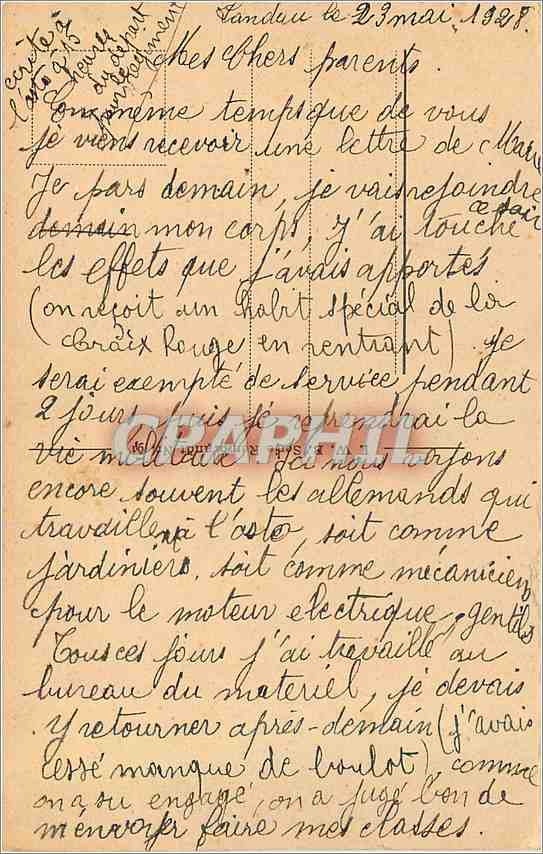 Landau le 23 mai 1928.
écrite à
l'asto à 15
heures
du départ
pour le régiment
Mes Chers parents.
En même temps que de vous
je viens recevoir une lettre de Marie
Je pars demain, je vais rejoindre
ce soir
demain mon corps, J'ai touché
les effets que j'avais apportés
(on reçoit un habit spécial de la
Croix Rouge en rentrant). Je
serai exempté de service pendant
2 jours puis je reprendrai la
vie militaire. Ici nous voyons
encore souvent les allemands qui
travaillent à l'asto, soit comme
jardiniers, soit comme mécaniciens
pour le moteur electrique, gentils
Tous ces jours j'ai travaillé au
bureau du materiel, je devais
y retourner après-demain (j'avais
cessé manque de boulot), comme
on a su engagé, on a jugé bon de
m'envoyer faire mes classes.
CPAPHIL